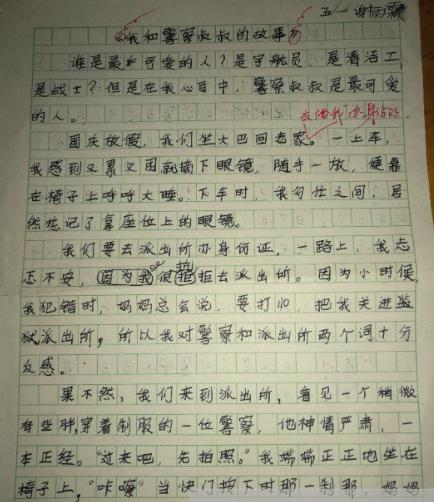 五一 谢
《我和警察叔叔的故事》
谁是最可爱的人？是宇航员、是清洁工，
是战士？但是在我心目中，警察叔叔是最可爱
的人。
国庆放假，我们坐大巴回老家。一上车，
我感到又累又困就摘下眼镜，随手一放，便靠
在椅子上呼呼大睡。下车时，我匆忙之间，居
然忘记了拿座位上的眼镜。
我们要去派出所办身份证，一路上，我忐
忑不安，因为我很拒去派出所。因为小时候，
我犯错时，妈妈总会说，要打110，把我关进监
狱派出所，所以我对警察和派出所两个词十分
反感。
果不然，我们来到派出所，看见一个稍微
有些胖，穿着制服的一位警察，他神情严肃，一
本正经。“过来吧，先拍照。”我端端正正地坐在
椅子上，“咔嚓”当快门按下时那一刹那，妈妈